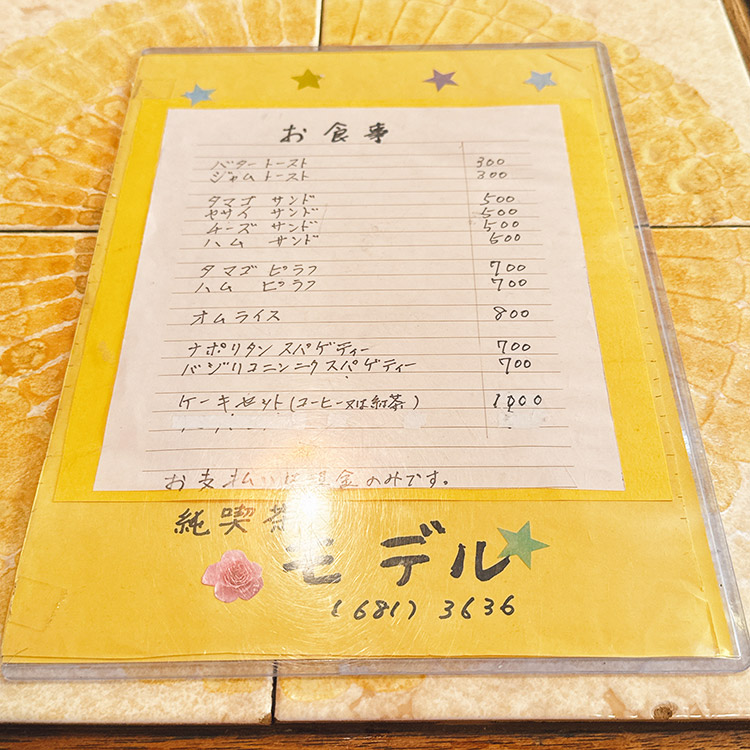 お食事
バタートースト 300
ジャムトースト 300
タマゴ サンド 500
ヤサイ サンド 500
チーズ サンド 500
ハム サンド 500
タマゴ ピラフ 700
ハム ピラフ 700
オムライス 800
ナポリタンスパゲティー 700
バジリコニンニクスパゲティー 700
ケーキセット(コーヒー又は紅茶) 1000
お支払いは現金のみです。
純喫茶
モデル
(681) 3636